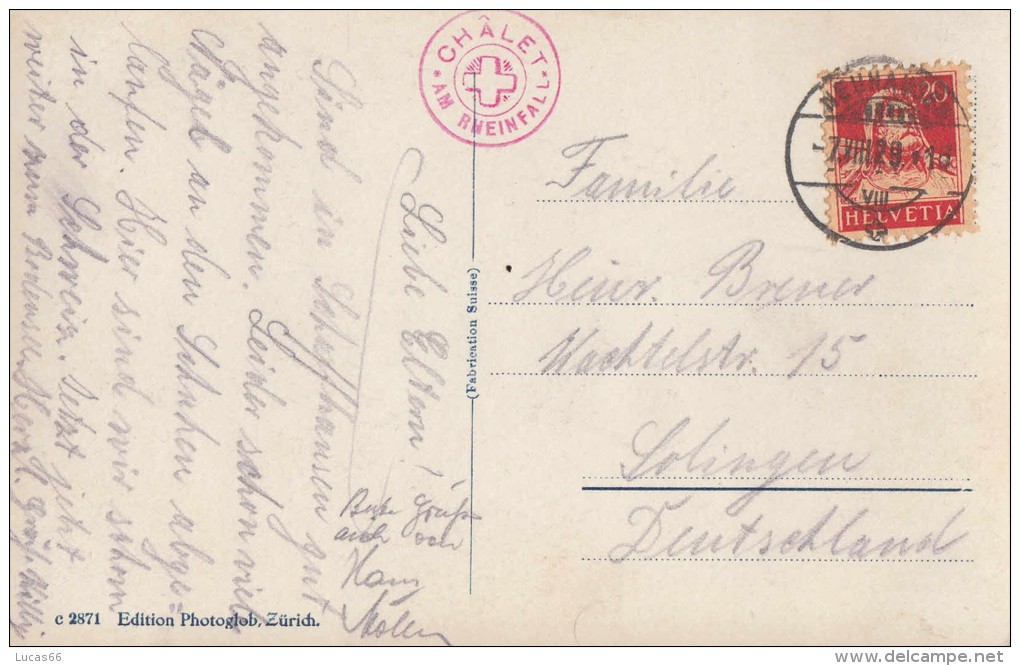 Liebe Eltern!
Sind in Schaffhausen gut
angekommen. Leider schon viele
Nägel an den Schuhen abge=
laufen. Hier sind wir schon
in der Schweiz. Jetzt geht
weiter zum Bodensee. Herzl. Grüße Willy
Beste Grüße
auch von
Hans
CHÂLET
* AM RHEINFALL *
(Fabrication Suisse)
20
HELVETIA
-7.VIII.29
VIII
Familie
Heinr. Brener
Wachtelstr. 15
Solingen
Deutschland
c 2871 Edition Photoglob, Zürich.
Lucas66
www.delcampe.net